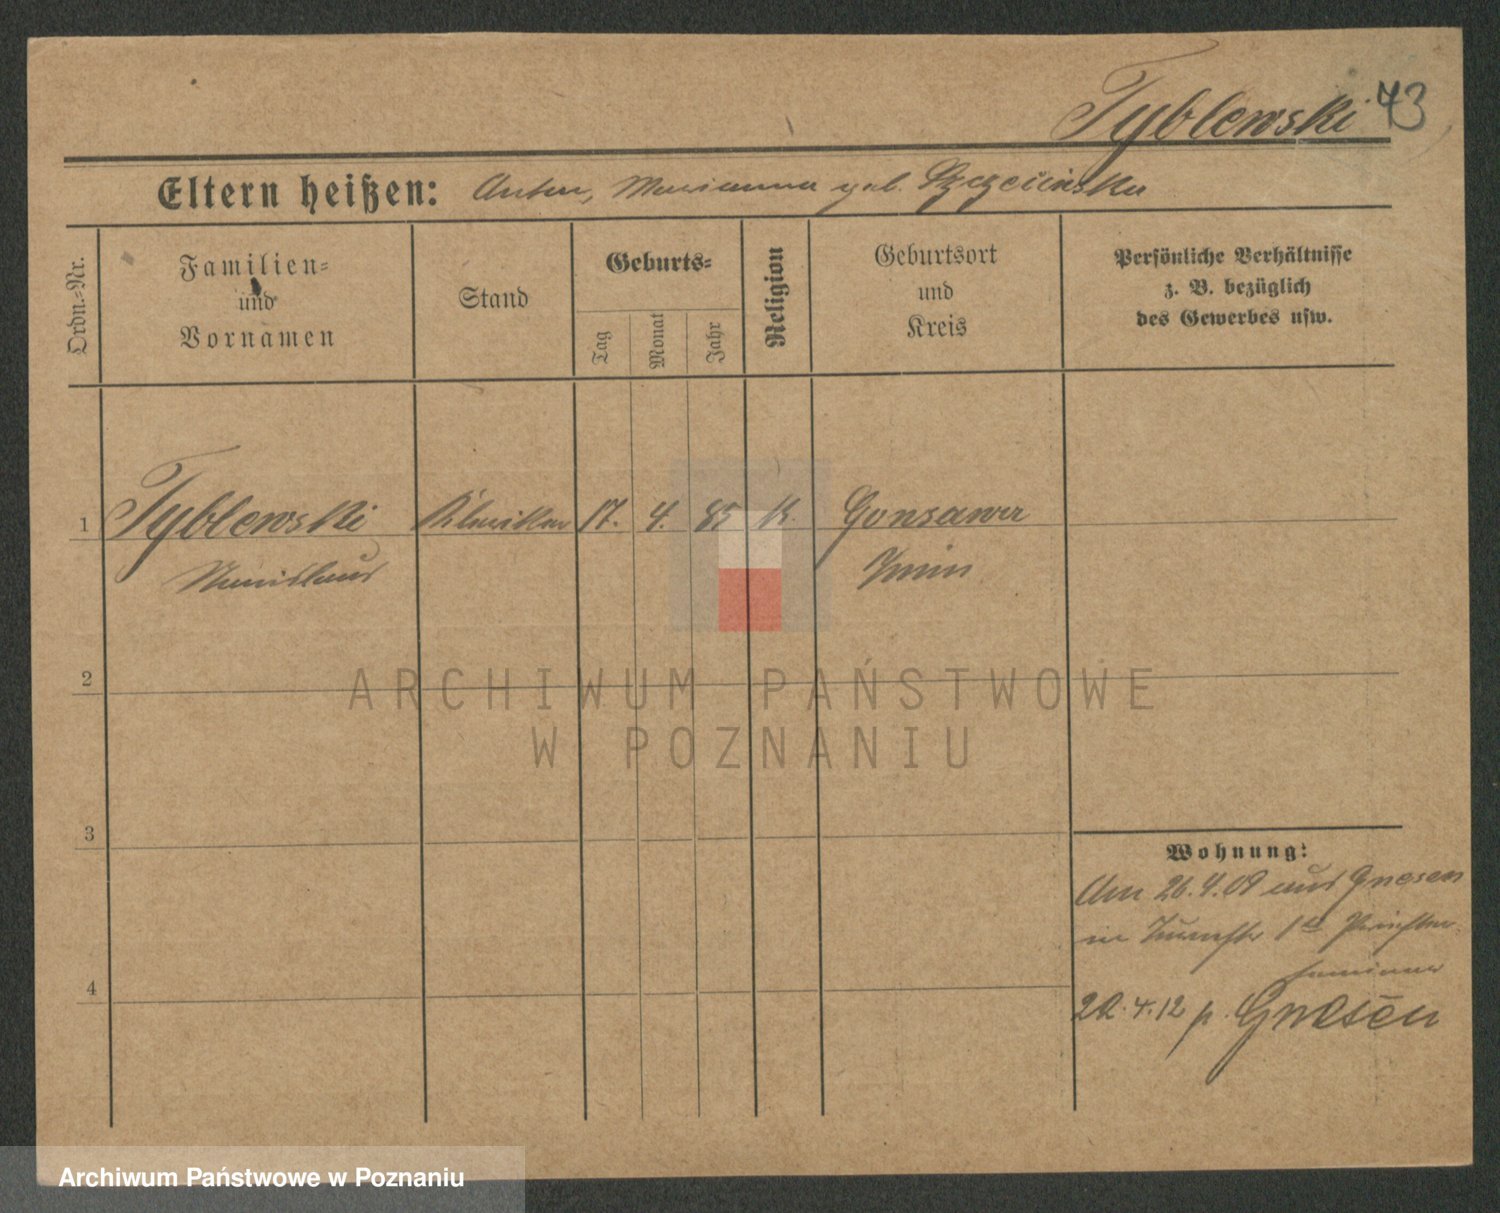 Tyblewski 73
Eltern heißen: Anton, Marianna geb.
Ordn.-Nr.
Familien-
und
Vornamen
Stand
Geburts-
Tag
Monat
Jahr
Religion
Geburtsort
und
Kreis
Persönliche Verhältnisse
z. B. bezüglich
des Gewerbes usw.
1 Tyblewski Kleriker 17. 4. 85 k. Gonsawa
Stanislaus Znin
2
3
4
Wohnung:
Am 26.4.09 aus Gnesen
in Priester
seminar
20.4.12 p. Gnesen
ARCHIWUM PAŃSTWOWE
W POZNANIU
Archiwum Państwowe w Poznaniu